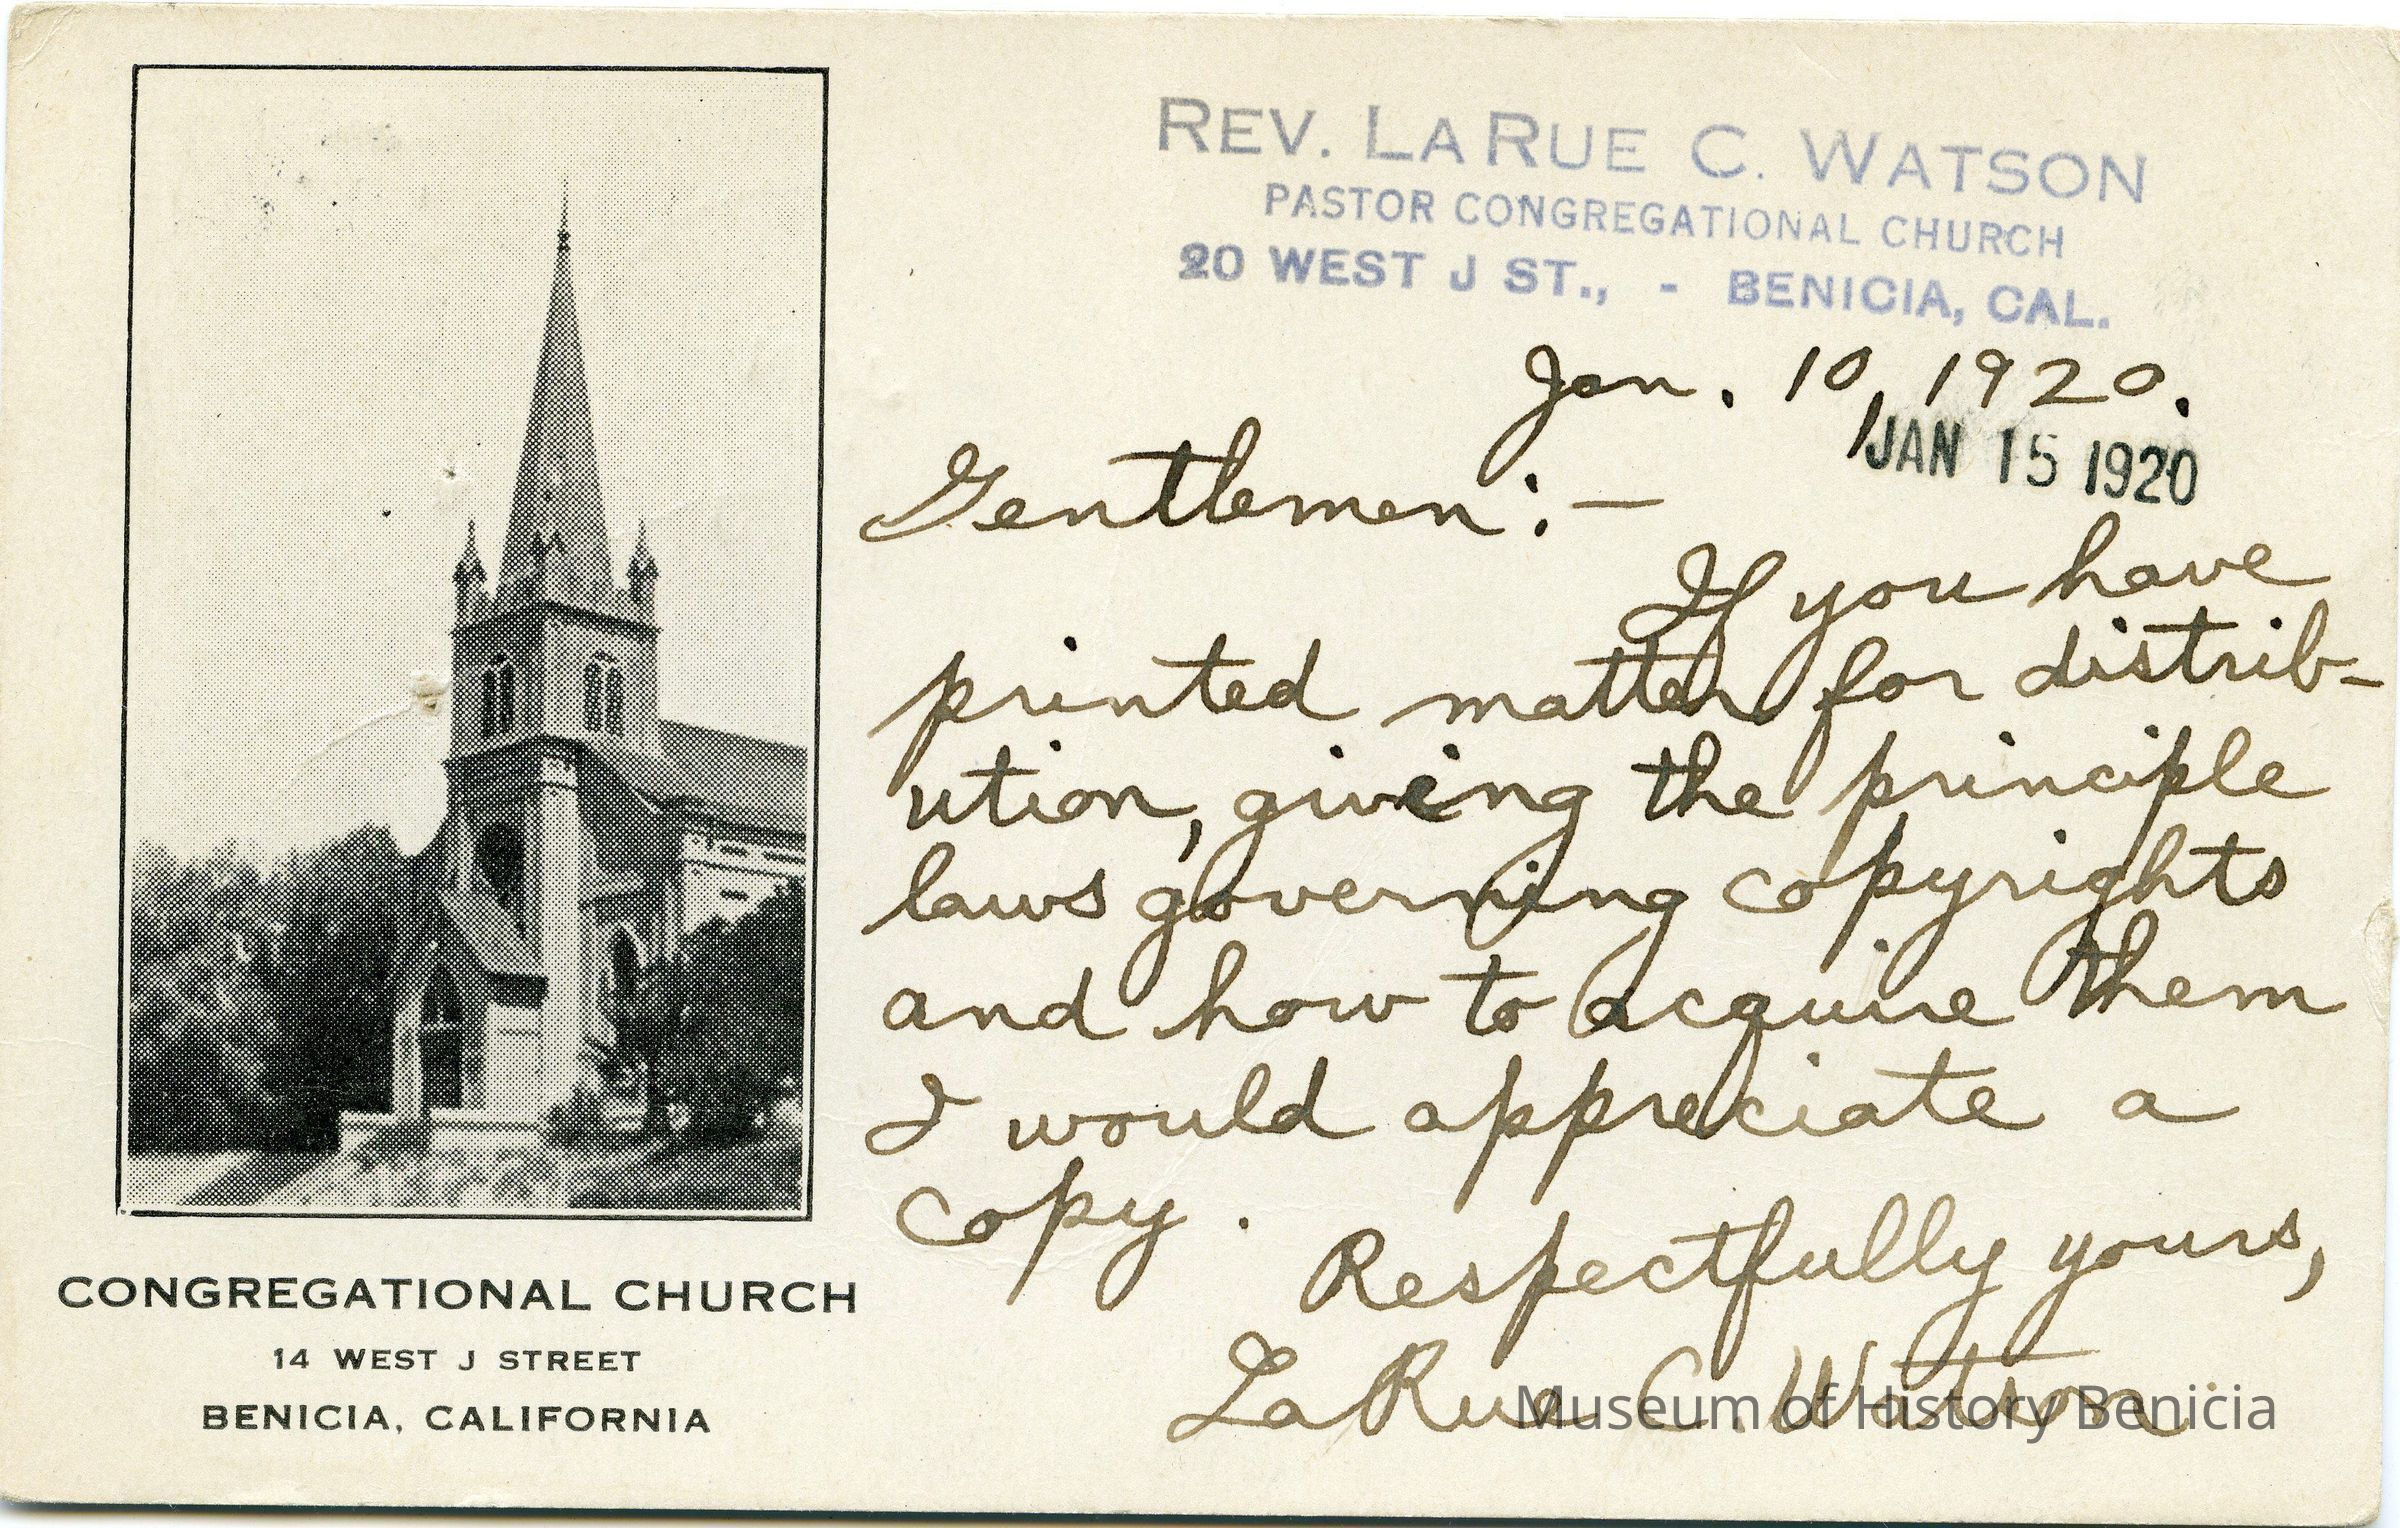 REV. LARUE C. WATSON
PASTOR CONGREGATIONAL CHURCH
20 WEST J ST., - BENICIA, CAL.
Jan. 10, 1920.
JAN 15 1920
Gentlemen:—
If you have
printed matter for distrib-
ution, giving the principle
laws governing copyrights
and how to acquire them
I would appreciate a
copy.
Respectfully yours,
LaRue C. Watson
CONGREGATIONAL CHURCH
14 WEST J STREET
BENICIA, CALIFORNIA
Museum of History Benicia